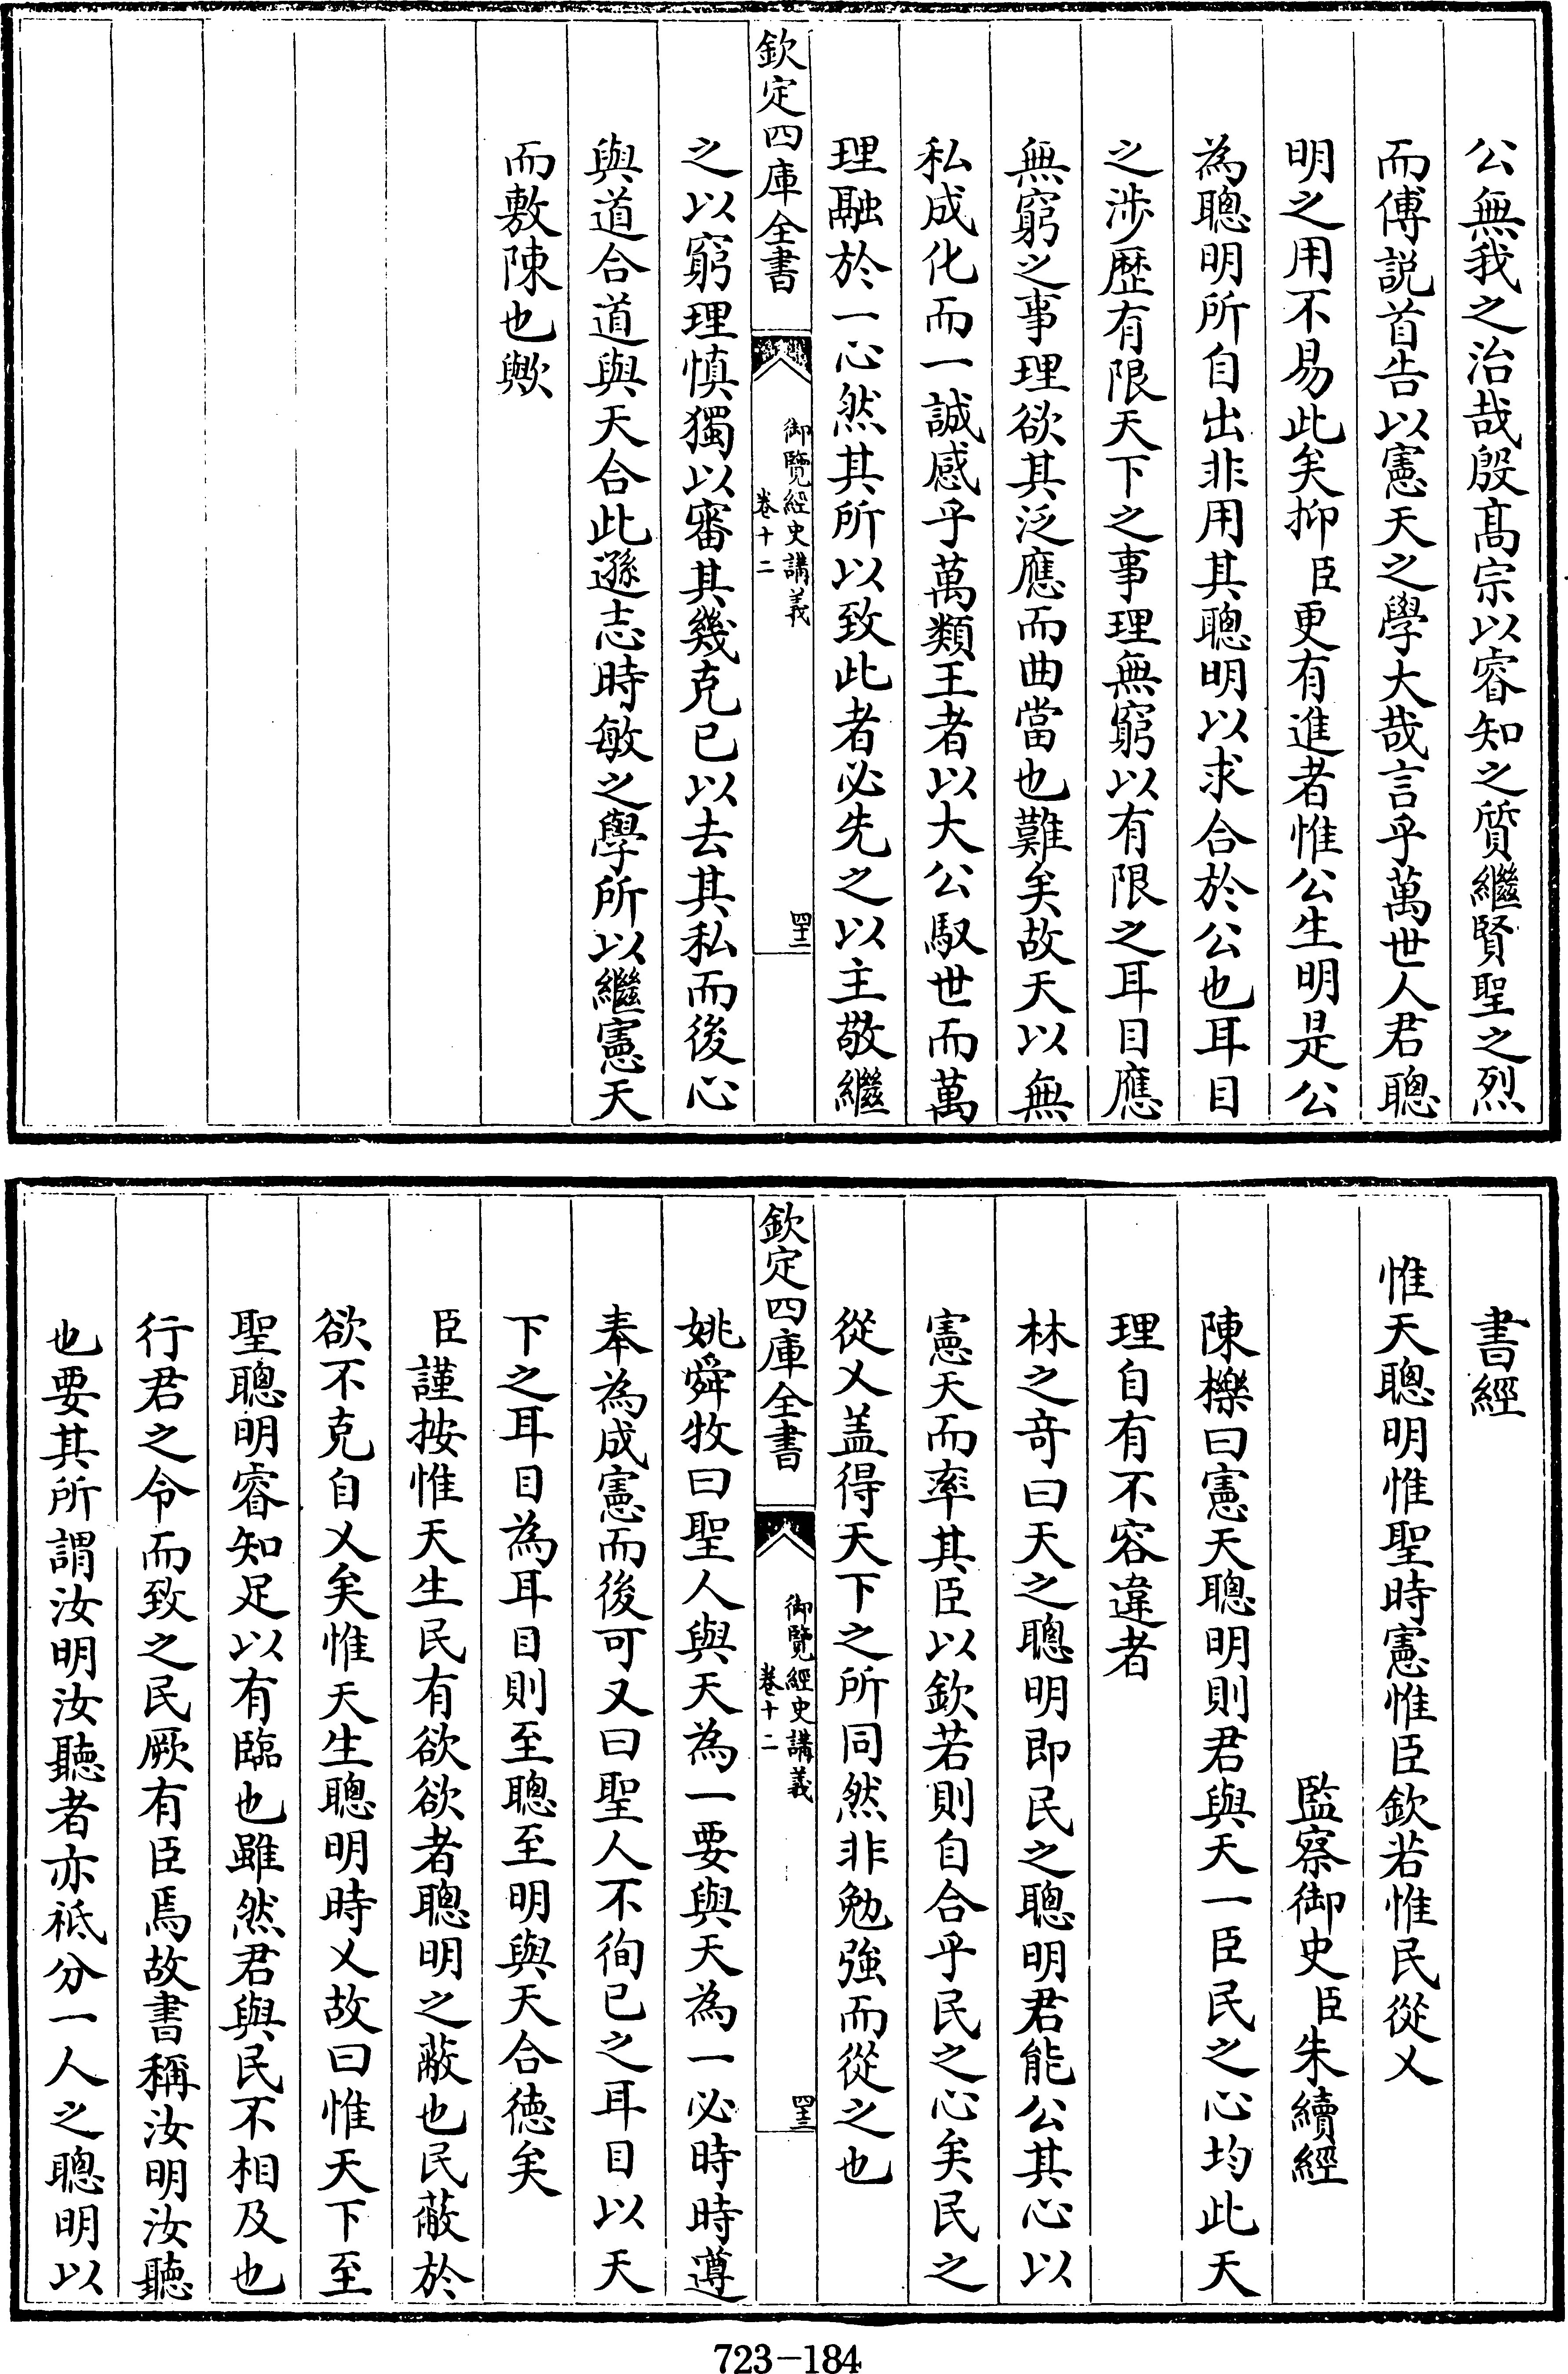 公無我之治哉殷髙宗以睿知之質繼賢聖之烈
而傅説首告以憲天之學大哉言乎萬世人君聰
明之用不易此矣抑臣更有進者惟公生明是公
為聰明所自出非用其聰明以求合於公也耳目
之涉歴有限天下之事理無窮以有限之耳目應
無窮之事理欲其泛應而曲當也難矣故天以無
私成化而一誠感乎萬類王者以大公馭世而萬
理融於一心然其所以致此者必先之以主敬繼
欽定四庫全書
御覽經史講義
卷十二
四十二
之以窮理慎獨以審其幾克已以去其私而後心
與道合道與天合此遜志時敏之學所以繼憲天
而敷陳也歟
書經
惟天聰明惟聖時憲惟臣欽若惟民從乂
監察御史臣朱續經
陳櫟曰憲天聰明則君與天一臣民之心均此天
理自有不容違者
林之竒曰天之聰明即民之聰明君能公其心以
憲天而率其臣以欽若則自合乎民之心矣民之
從乂盖得天下之所同然非勉強而從之也
欽定四庫全書
御覽經史講義
卷十二
四十三
姚舜牧曰聖人與天為一要與天為一必時時遵
奉為成憲而後可又曰聖人不徇已之耳目以天
下之耳目為耳目則至聰至明與天合德矣
臣謹按惟天生民有欲欲者聰明之蔽也民蔽於
欲不克自乂矣惟天生聰明時乂故曰惟天下至
聖聰明睿知足以有臨也雖然君與民不相及也
行君之令而致之民厥有臣焉故書稱汝明汝聽
也要其所謂汝明汝聽者亦祗分一人之聰明以
723-184